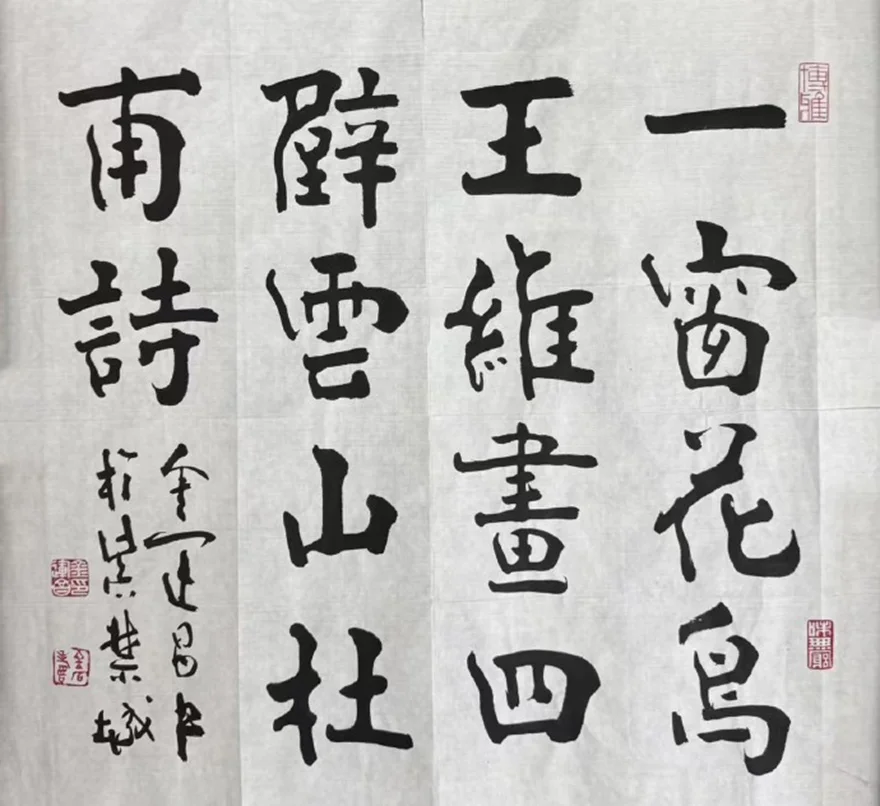 一窗花鳥
王維畫四
壁雲山杜
甫詩
金運昌書
於紫禁城
博雅